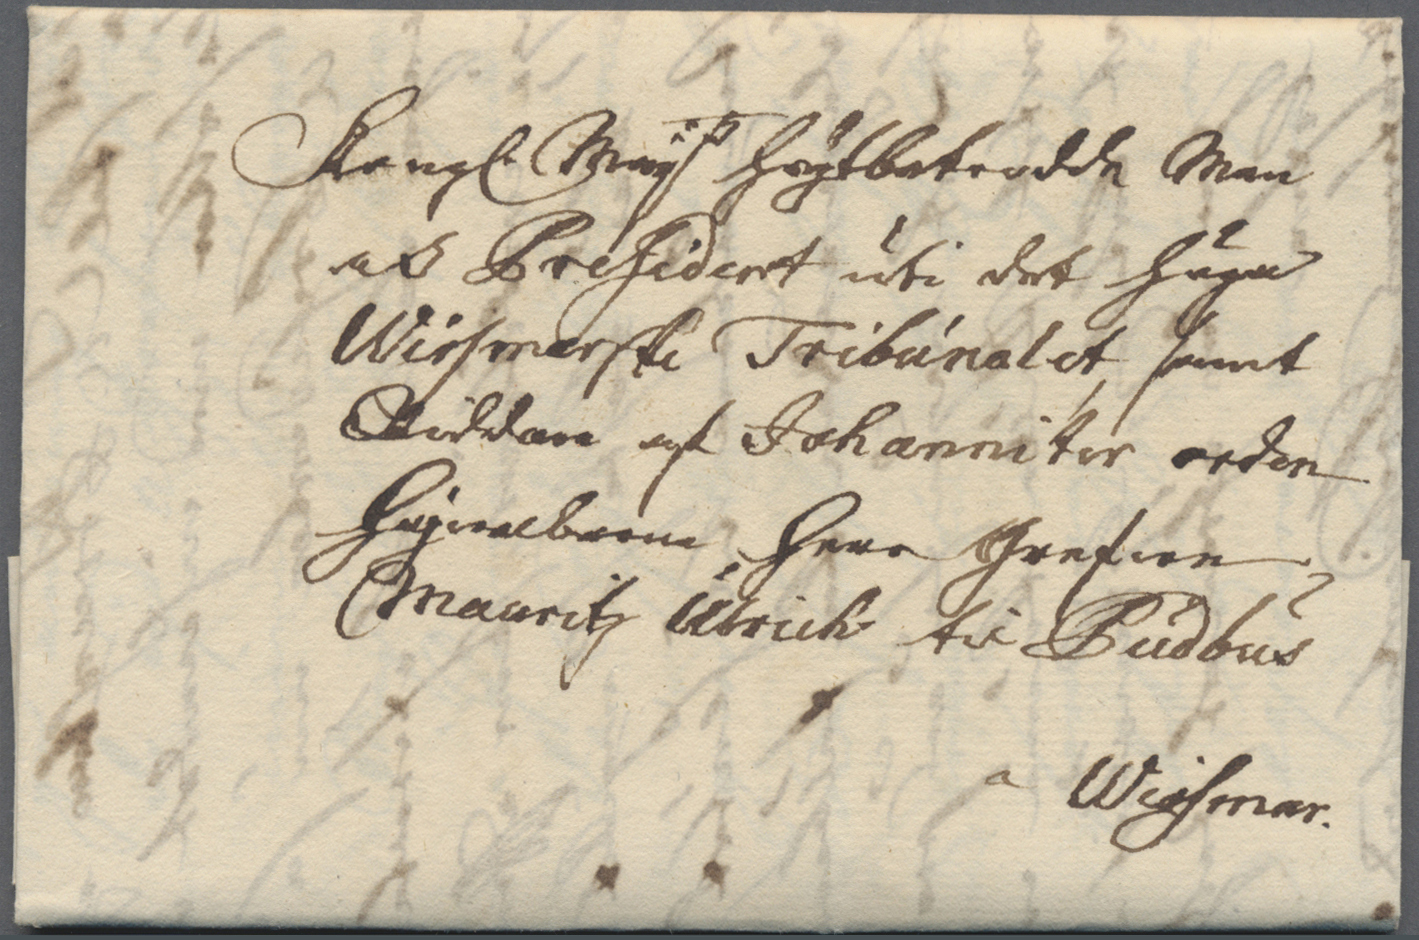 Kongl. Maytz högtbetrodde Man
och President uti det höga
Wissmerske Tribunalet, samt
Riddare af Johanniter orden
Högwelborne Herr Grefwen
Mauritz Ulrich til Pudbus
a Wissmar.